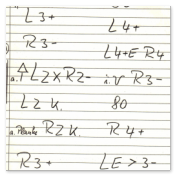 L3+ L4+
R3- L4+E R4
a. ↑L2xR2- i.v R3-
L2 K. 80
a. Planke R2K. R4+
R3+ LE > 3-